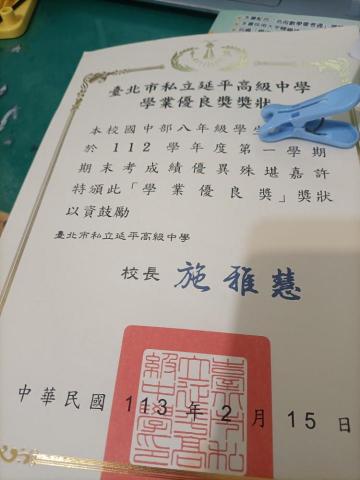 臺北市私立延平高級中學
學業優良獎獎狀
本校國中部八年級學生
於 112 學年度第一學期
期末考成績優異殊堪嘉許
特頒此「學業優良獎」獎狀
以資鼓勵
臺北市私立延平高級中學
校長 施雅慧
臺北市私
立延平高
級中學印
中華民國 113 年 2 月 15 日